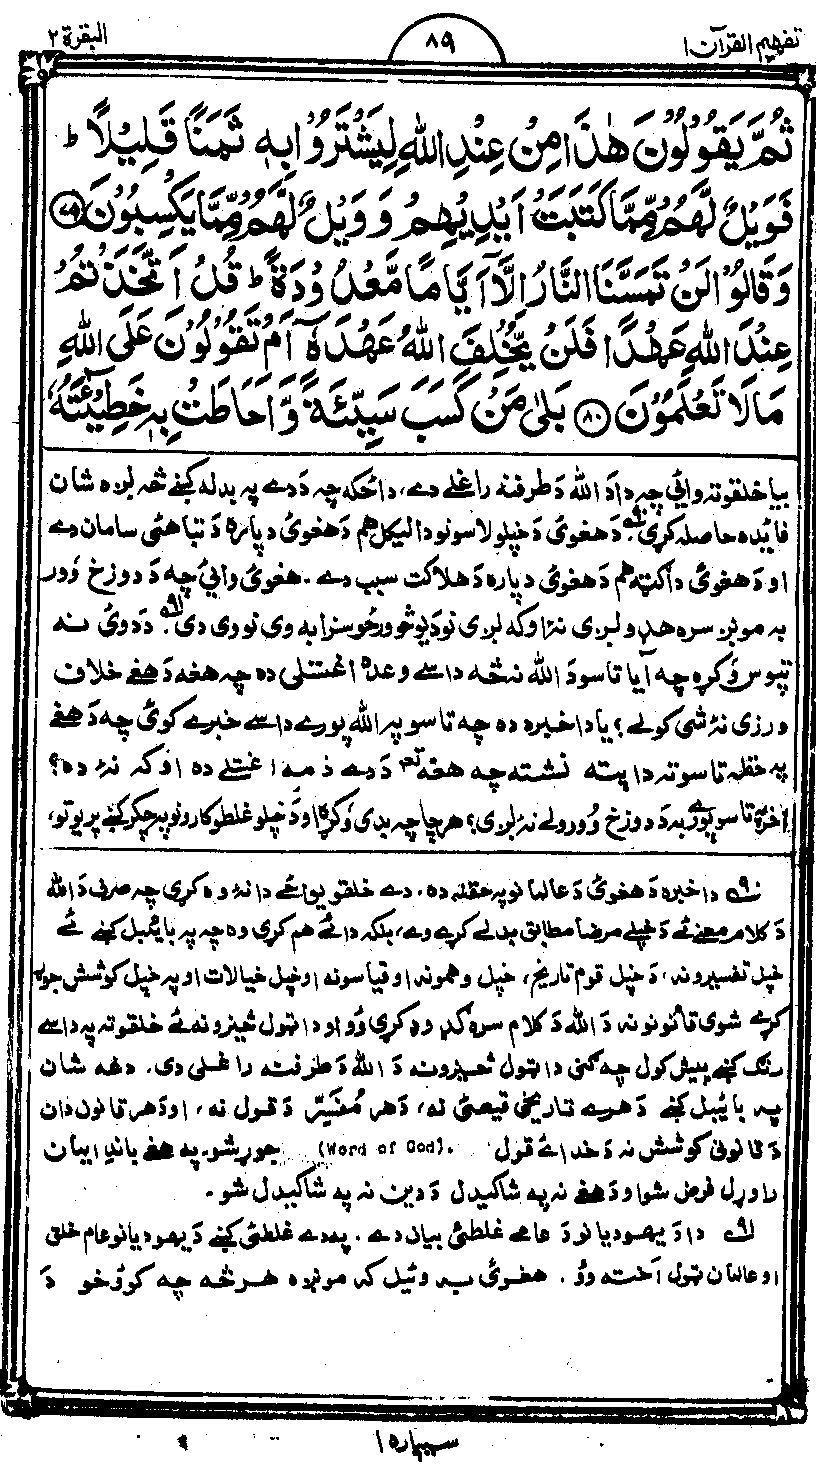 تفهیم القرآن ۱
۸۹
البقرة ۲
ثُمَّ يَقُوْلُوْنَ هٰذَا مِنْ عِنْدِ اللّٰهِ لِيَشْتَرُوْا بِهٖ ثَمَنًا قَلِيْلًا ؕ
فَوَيْلٌ لَّهُمْ مِّمَّا كَتَبَتْ اَيْدِيْهِمْ وَوَيْلٌ لَّهُمْ مِّمَّا يَكْسِبُوْنَ ﴿۷۹﴾
وَقَالُوْا لَنْ تَمَسَّنَا النَّارُ اِلَّآ اَيَّامًا مَّعْدُوْدَةً ؕ قُلْ اَتَّخَذْتُمْ
عِنْدَ اللّٰهِ عَهْدًا فَلَنْ يُّخْلِفَ اللّٰهُ عَهْدَهٗٓ اَمْ تَقُوْلُوْنَ عَلَى اللّٰهِ
مَا لَا تَعْلَمُوْنَ ﴿۸۰﴾ بَلٰى مَنْ كَسَبَ سَيِّئَةً وَّاَحَاطَتْ بِهٖ خَطِيْٓئَتُهٗ
بیا خلقو ته وائي چه دا د الله د طرفنه راغلے دے، دا ځکه چه د دے په بدله کښے څه لږه شان
فائده حاصله کړی. د هغوئ د خپلو لاسونو دا لیکل هم د هغوئ دپاره د تباهئ سامان دے
او د هغوئ دا ګټه هم د هغوئ دپاره د هلاکت سبب دے. هغوئ وائي چه د دوزخ وور
به مونږ سره هډو لږی نۀ او که لږی نو د یو څو ورځو سزا به وی نو وی دی. د دوئ نه
تپوس وکړه چه آیا تاسو د الله نه څه داسے وعده اغستلی ده چه هغه د هغے خلاف
ورزی نۀ شی کولے؟ یا دا خبره ده چه تاسو په الله پورے داسے خبرے کوئ چه د هغے
په حقله تاسو ته دا پته نشته چه هغه د دے ذمه اغستے ده او که نۀ ده؟
آخر تاسو پورے به د دوزخ وور ولے نۀ لږی؟ هر چا چه بدی وکړه او د خپلو غلطو کارونو په چکر کښے پریوتو،
۹۰ دا خبره د هغوئ د عالمانو په حقله ده. دے خلقو یواځے دا نۀ وه کړی چه صرف د الله
د کلام معنے ئے د خپلے مرضئ مطابق بدلے کړے وے، بلکه دا ئے هم کړی وه چه په بائیبل کښے ئے
خپل تفسیرونه، د خپل قوم تاریخ، خپل وهمونه او قیاسونه او خپل خیالات او په خپل کوشش جوړ
کړے شوی قانونونه د الله د کلام سره ګډ وډ کړی وو او دا ټول څیزونه ئے خلقو ته په داسے
رنګ کښے پیش کول چه ګنی دا ټول څیزونه د الله د طرفنه راغلی دی. دغه شان
په بائیبل کښے د هرے تاریخی قیصئ نه، د هر مُفَسِّر د قول نه، او د هر قانون دان
د قانونی کوشش نه د خدائے قول (Word of God). جوړ شو. په هغے باندے ایمان
راوړل فرض شو او د هغے نه په شا کیدل د دین نه په شا کیدل شو.
۹۱ دا د یهودیانو د عامے غلطئ بیان دے. په دے غلطئ کښے د یهودیانو عام خلق
او عالمان ټول اخته وو. هغوئ به وئیل که مونږه هر څه چه کوؤ خو د
سیپاره ۱